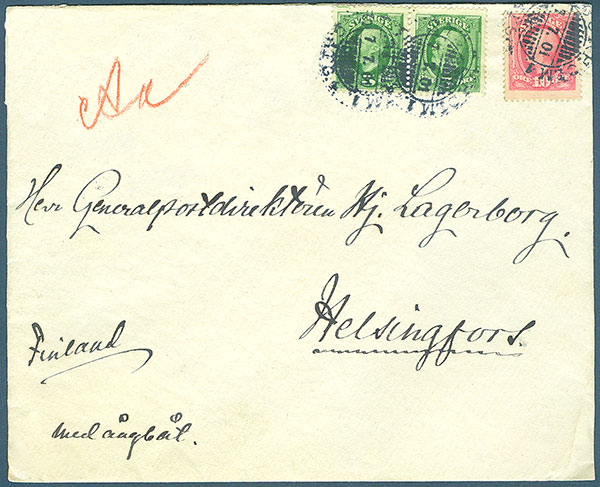 SVERIGE SVERIGE
7. 7. 01
ÖRE 10
Aa
Herr Generalpostdirektören Hj. Lagerborg.
Helsingfors.
Finland
med ångbåt.